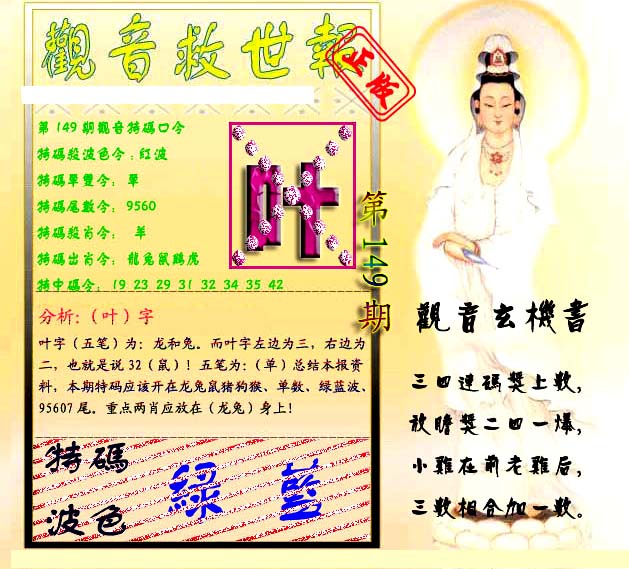 觀音救世報
正版
第149期觀音特碼口令
特碼殺波色令:紅波
特碼單雙令: 單
特碼尾數令: 9560
特碼殺肖令: 羊
特碼出肖令: 龍兔鼠鷄虎
特中碼令: 19 23 29 31 32 34 35 42
叶
第149期
分析:(叶)字
叶字(五笔)为:龙和兔。而叶字左边为三,右边为
二,也就是说32(鼠)!五笔为:(单)总结本报资
料,本期特码应该开在龙兔鼠猪狗猴、单数、绿蓝波、
95607尾。重点两肖应放在(龙兔)身上!
特碼
波色
綠 藍
觀音玄機書
三四連碼獎上數,
放膽獎二四一爆,
小雞在前老雞后,
三數相合加一數。